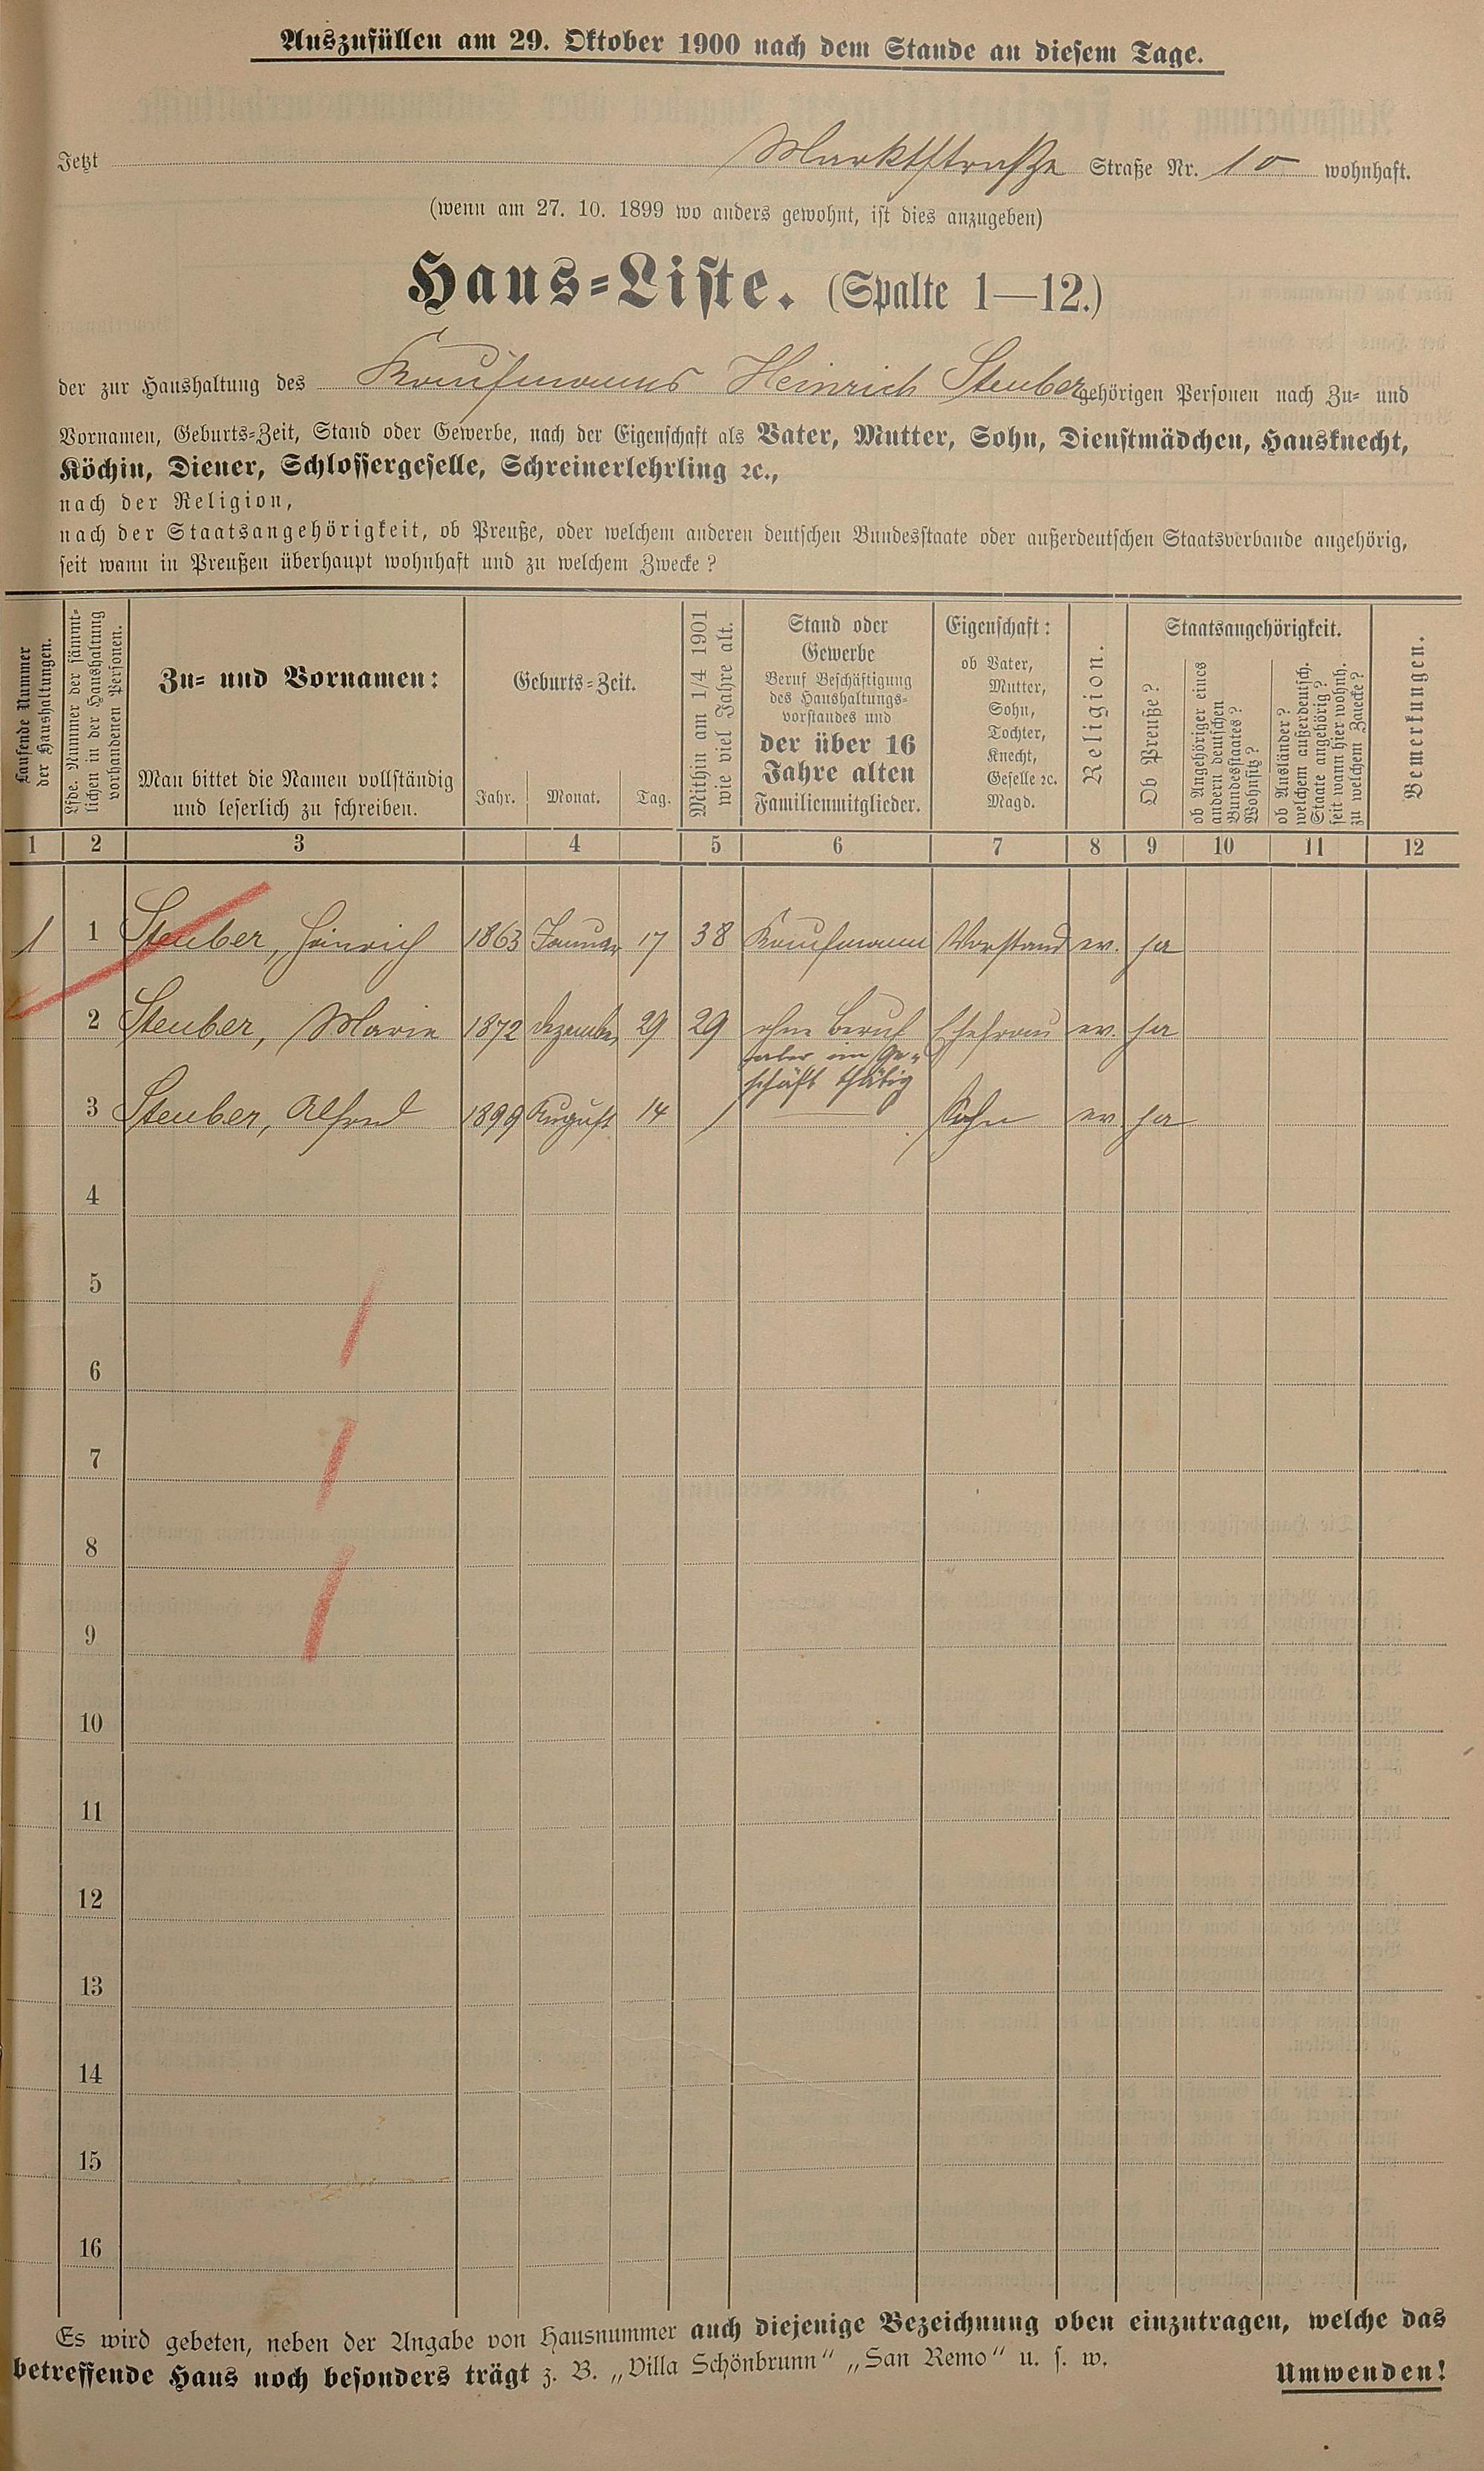 Auszufüllen am 29. Oktober 1900 nach dem Stande an diesem Tage.
Jetzt Marktstraße Straße Nr. 10 wohnhaft.
(wenn am 27. 10. 1899 wo anders gewohnt, ist dies anzugeben)
Haus-Liste. (Spalte 1—12.)
der zur Haushaltung des Kaufmanns Heinrich Steuber gehörigen Personen nach Zu- und
Vornamen, Geburts-Zeit, Stand oder Gewerbe, nach der Eigenschaft als Vater, Mutter, Sohn, Dienstmädchen, Hausknecht,
Köchin, Diener, Schlossergeselle, Schreinerlehrling ꝛc.,
nach der Religion,
nach der Staatsangehörigkeit, ob Preuße, oder welchem anderen deutschen Bundesstaate oder außerdeutschen Staatsverbande angehörig,
seit wann in Preußen überhaupt wohnhaft und zu welchem Zwecke?
Laufende Nummer
der Haushaltungen.
Lfde. Nummer der sämmt-
lichen in der Haushaltung
vorhandenen Personen.
Zu- und Vornamen:
Man bittet die Namen vollständig
und leserlich zu schreiben.
Geburts-Zeit.
Jahr. Monat. Tag.
Mithin am 1/4 1901
wie viel Jahre alt.
Stand oder
Gewerbe
Beruf Beschäftigung
des Haushaltungs-
vorstandes und
der über 16
Jahre alten
Familienmitglieder.
Eigenschaft:
ob Vater,
Mutter,
Sohn,
Tochter,
Knecht,
Geselle ꝛc.
Magd.
Religion.
Staatsangehörigkeit.
Ob Preuße?
ob Angehöriger eines
andern deutschen
Bundesstaates?
Wohnsitz?
ob Ausländer?
welchem außerdeutsch.
Staate angehörig?
seit wann hier wohnh.
zu welchem Zwecke?
Bemerkungen.
1 2 3 4 5 6 7 8 9 10 11 12
1 1 Steuber, Heinrich 1863 Januar 17 38 Kaufmann Vorstand ev. ja
2 Steuber, Marie 1872 Dezember 29 29 ohne Beruf Ehefrau ev. ja
aber im Ge-
schäft thätig
3 Steuber, Alfred 1899 August 14 1 — Sohn ev. ja
4
5
6
7
8
9
10
11
12
13
14
15
16
Es wird gebeten, neben der Angabe von Hausnummer auch diejenige Bezeichnung oben einzutragen, welche das
betreffende Haus noch besonders trägt z. B. „Villa Schönbrunn“ „San Remo“ u. s. w.
Umwenden!